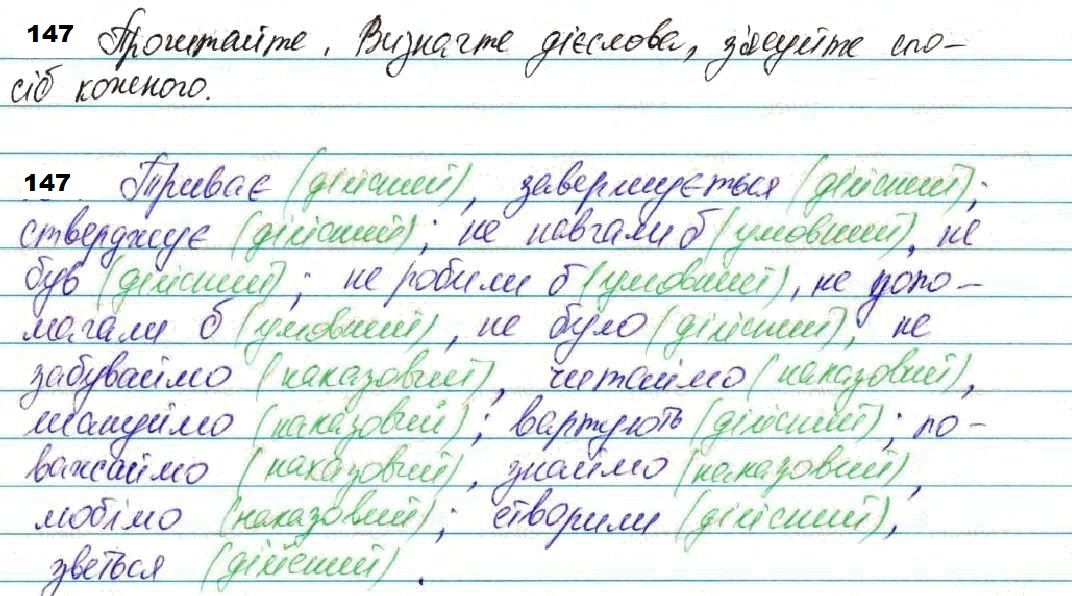 147 Прочитайте. Визначте дієслова, з'ясуйте спо-
сіб кожного.
147 Триває (дійсний), завершується (дійсний);
стверджує (дійсний); не повчали б (умовний), не
був (дійсний); не робили б (умовний), не допо-
магали б (умовний), не було (дійсний), не
забуваймо (наказовий), читаймо (наказовий),
шануймо (наказовий); вартують (дійсний); по-
важаймо (наказовий), знаймо (наказовий),
любімо (наказовий); створили (дійсний),
зветься (дійсний).